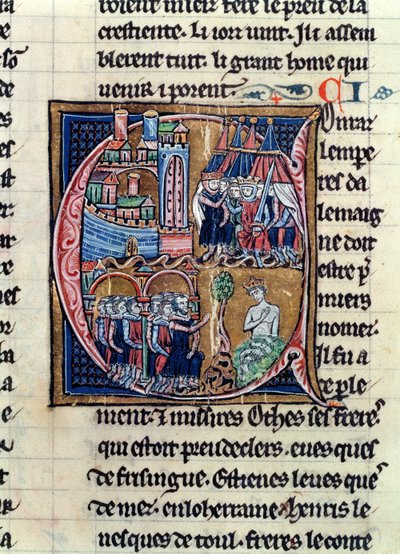 crestiente. Li iorz uint. Il assem
blerent tuit. li grant home qui
uenir i porent. CI
Onrar
lempe
res da
lemaig
ne doit
estre p̃
miers
nomez.
Il fu a
ce ple
ment. ⁊ missires Othes ses freres
qui estoit preu declers. eues ques
de frisingue. Estienes leues que
de mez. enloherraine. ⁊ henris le
uesques de toul. freres leconte